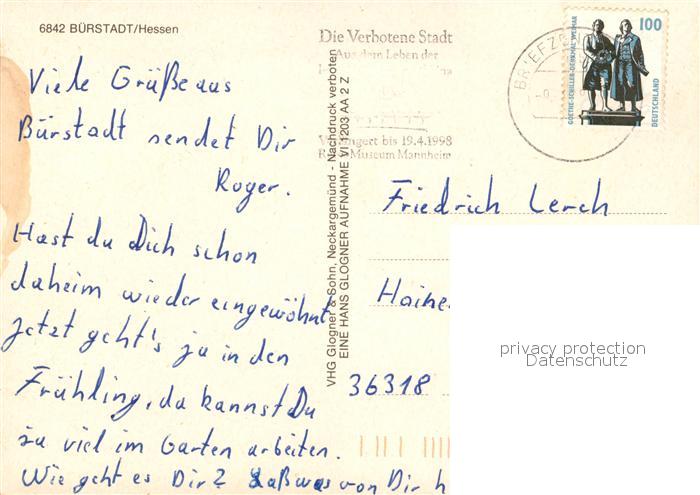 6842 BÜRSTADT/Hessen
Viele Grüße aus
Bürstadt sendet Dir
Roger.
Hast du Dich schon
daheim wieder eingewöhnt
jetzt geht's ja in den
Frühling, da kannst Du
ja viel im Garten arbeiten.
Wie geht es Dir? Laß was von Dir h
VHG Glogner & Sohn, Neckargemünd - Nachdruck verboten
EINE HANS GLOGNER AUFNAHME VI 1203 AA 2 Z
Die Verbotene Stadt
Aus dem Leben der
bis 19.4.1998
Museum Mannheim
BRIEFZ
100
GOETHE-SCHILLER-DENKMAL WEIMAR
DEUTSCHLAND
Friedrich Lerch
Haine
36318
privacy protection
Datenschutz